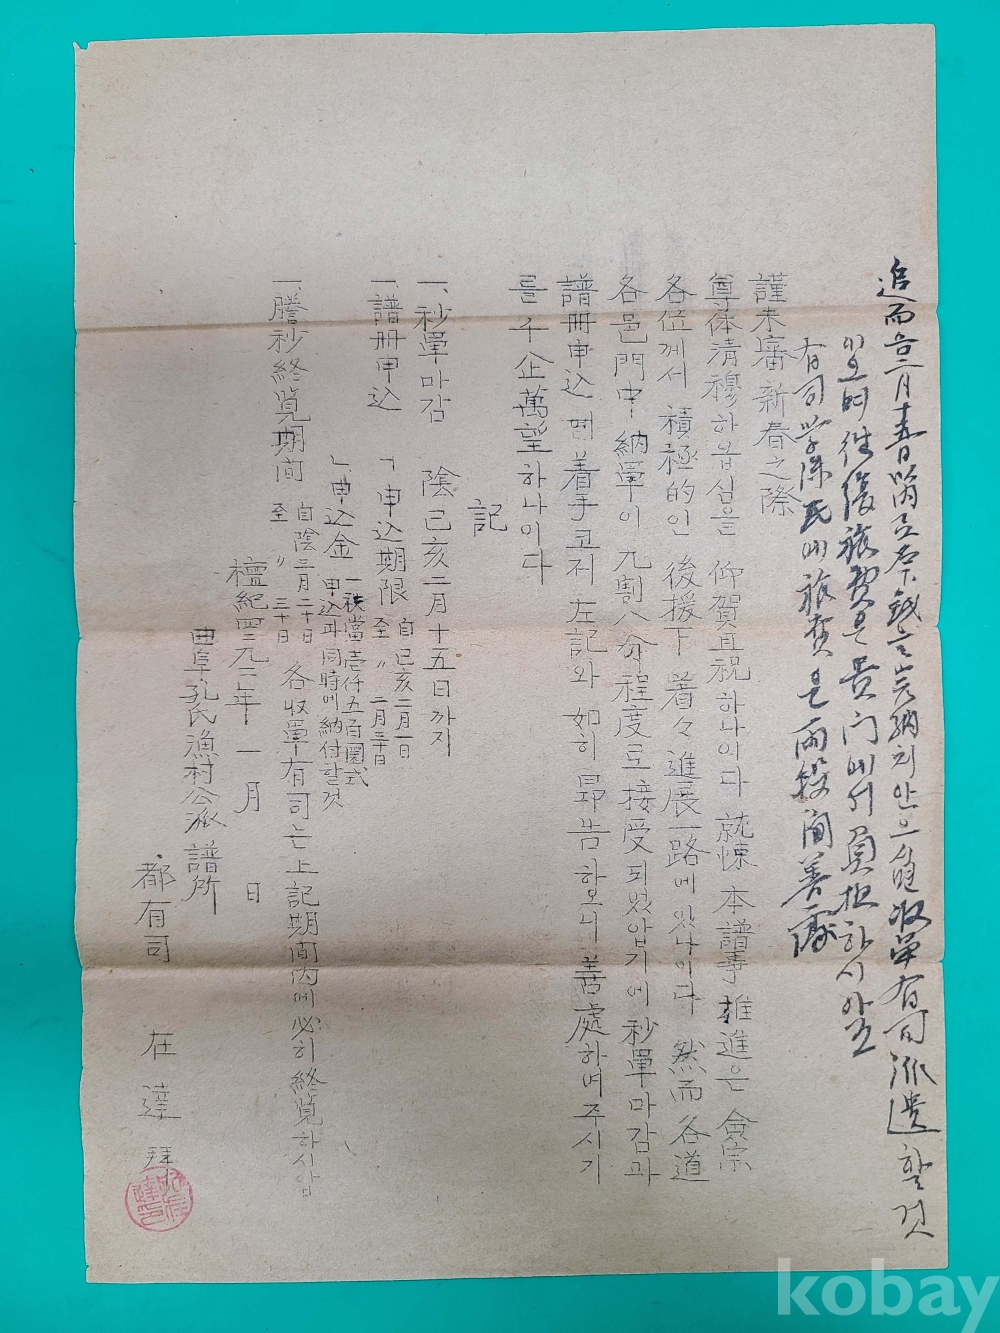 追而 二月十五日 納치 안으시면 收單有司 派遣할 것
이오며 往復旅費은 貴門에서 負担하시압고
有司 氏에 旅費
謹未審新春之際
尊体淸穆하옵심을 仰賀且祝하나이다 就悚 本譜事 推進은 僉宗
各位께서 積極的인 後援下 着々 進展一路에 있나이다 然而 各道
各邑門中 納單이 九割八分 程度로 接受되였압기에 秒單 마감과
譜冊申込에 着手코저 左記와 如히 昻告하오니 善處하여 주시기
를 千企萬望하나이다
記
一、秒單마감 陰己亥二月十五日까지
一、譜冊申込 「申込期限 自己亥二月一日 至〃二月三十日
」申込金 一秩當壱仟五百圜式 申込과同時에納付할것
一、謄秒終覓期間 自陰三月二十日 至〃三十日 各收單有司는 上記期間內에 必히 終覓하시압
檀紀四二九二年 一月 日
曲阜孔氏漁村公派譜所
都有司 在達 拜
kobay